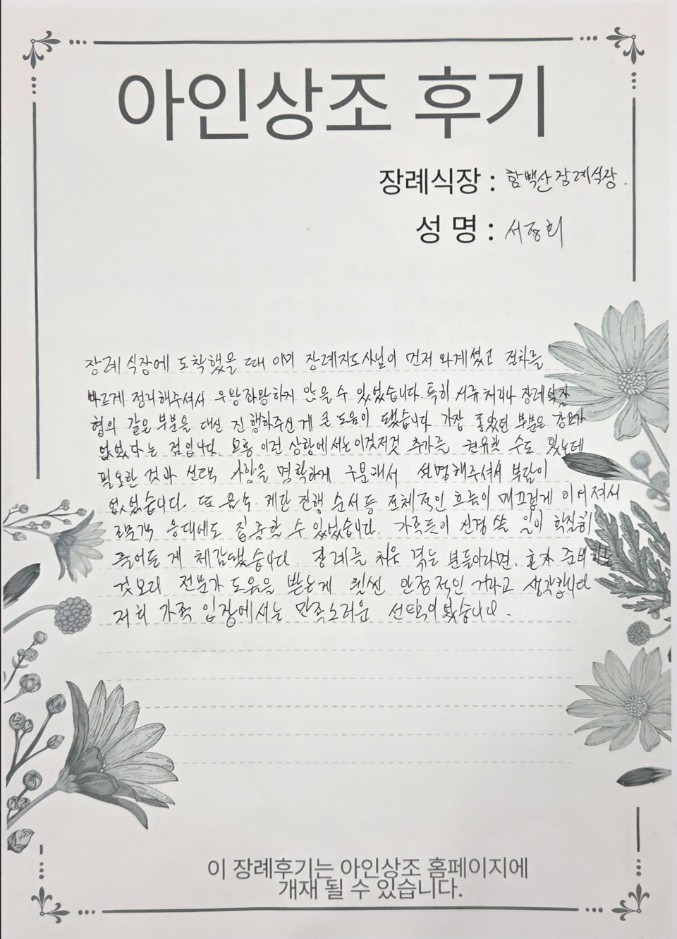 아인상조 후기
장례식장 : 함백산장례식장.
성 명 : 서
장례식장에 도착했을 때 이미 장례지도사님이 먼저 와계셨고 절차를
빠르게 정리해주셔서 우왕좌왕하지 않을 수 있었습니다. 특히 서류 처리나 장례식장
협의 같은 부분을 대신 진행해주신게 큰 도움이 됐습니다. 가장 좋았던 부분은 강요가
없었다는 점입니다. 보통 이런 상황에서는 이것저것 추가를 권유할 수도 있는데
필요한 것과 선택 사항을 명확하게 구분해서 설명해주셔서 부담이
없었습니다. 또 입관, 제단 진행 순서 등 전체적인 흐름이 매끄럽게 이어져서
조문객 응대에도 집중할 수 있었습니다. 가족들이 신경 쓸 일이 확실히
줄어든 게 체감됐습니다. 장례를 처음 겪는 분들이라면, 혼자 준비하는
것보다 전문가 도움을 받는게 훨씬 안정적인 거라고 생각합니다
저희 가족 입장에서는 만족스러운 선택이었습니다.
이 장례후기는 아인상조 홈페이지에
개재 될 수 있습니다.